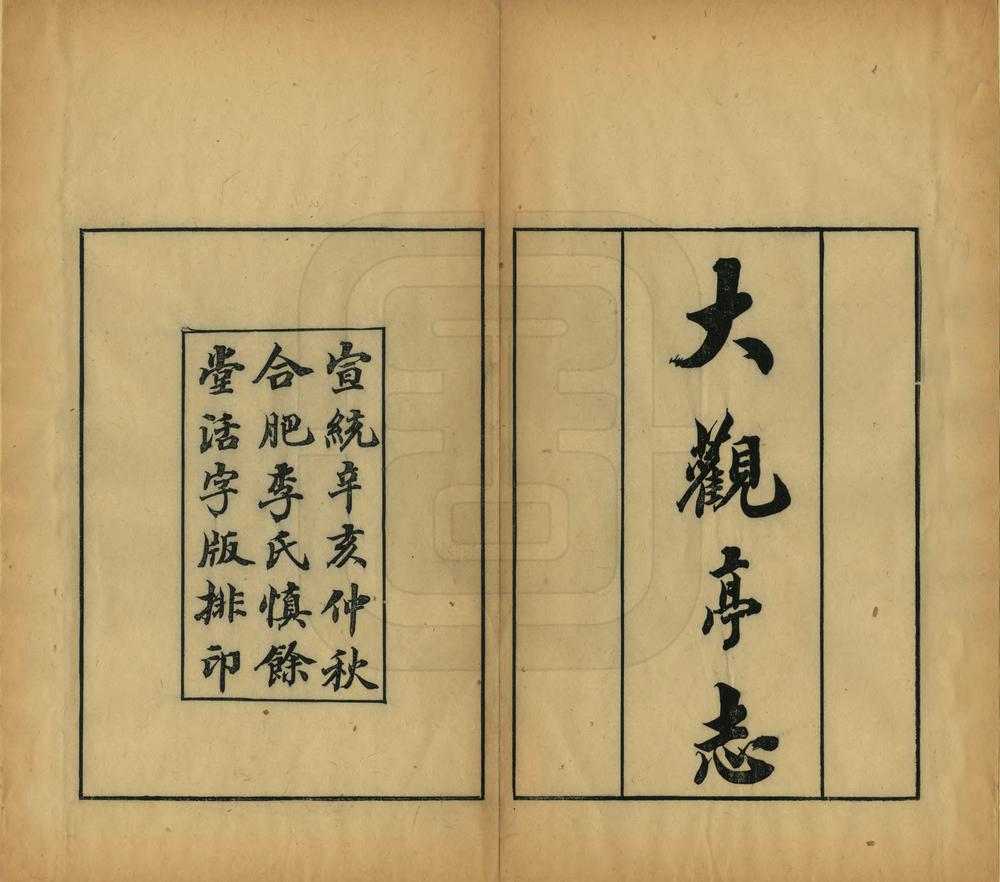 大觀亭志
宣統辛亥仲秋
合肥李氏慎餘
堂活字版排印